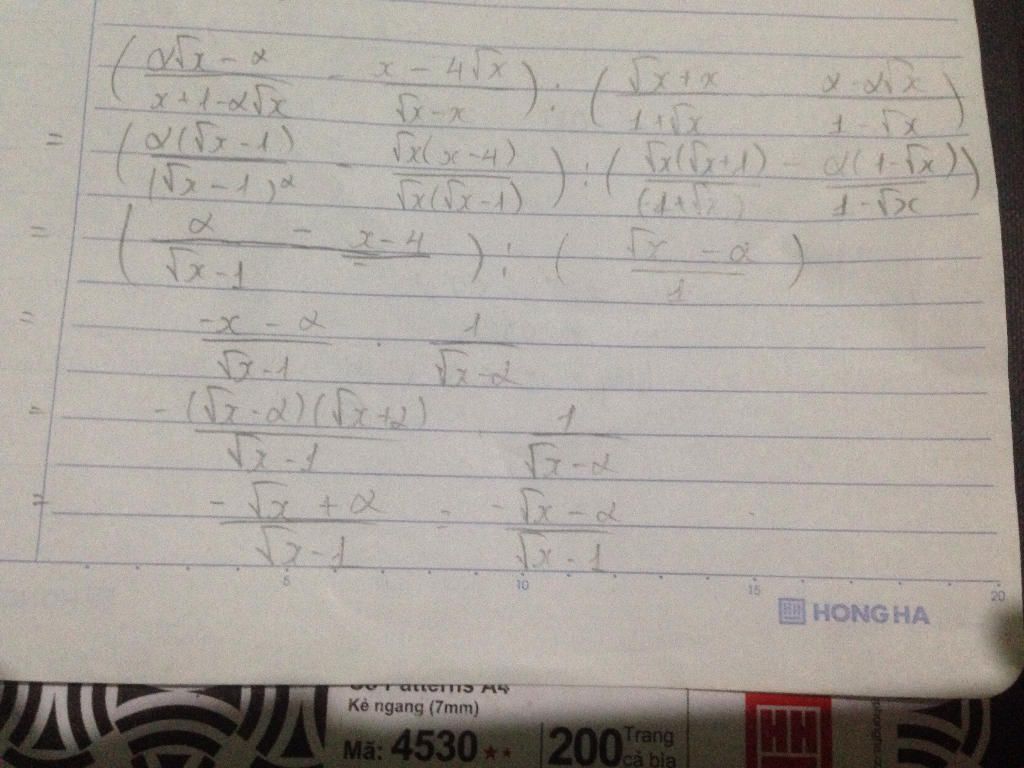 (2√x - 2)/(x + 1 - 2√x) - (x - 4√x)/(√x - x) : (√x + x)/(1 + √x) (2 - 2√x)/(1 - √x)
= (2(√x - 1)/(√x - 1)² - √x(x - 4)/√x(√x - 1)) : (√x(√x + 1)/(1 + √x) - 2(1 - √x)/(1 - √x))
= (2 - x - 4/√x - 1) : (√x - 2/1)
= (-x - 2)/(√x - 1) . 1/(√x - 2)
= -(√x - 2)(√x + 2)/(√x - 1) . 1/(√x - 2)
= (-√x + 2)/(√x - 1) = (-√x - 2)/(√x - 1)
5 10 15 20
HH HONG HA
Patterns A4
Kẻ ngang (7mm)
Mã: 4530 ★★ 200 Trang
cả bìa
HH